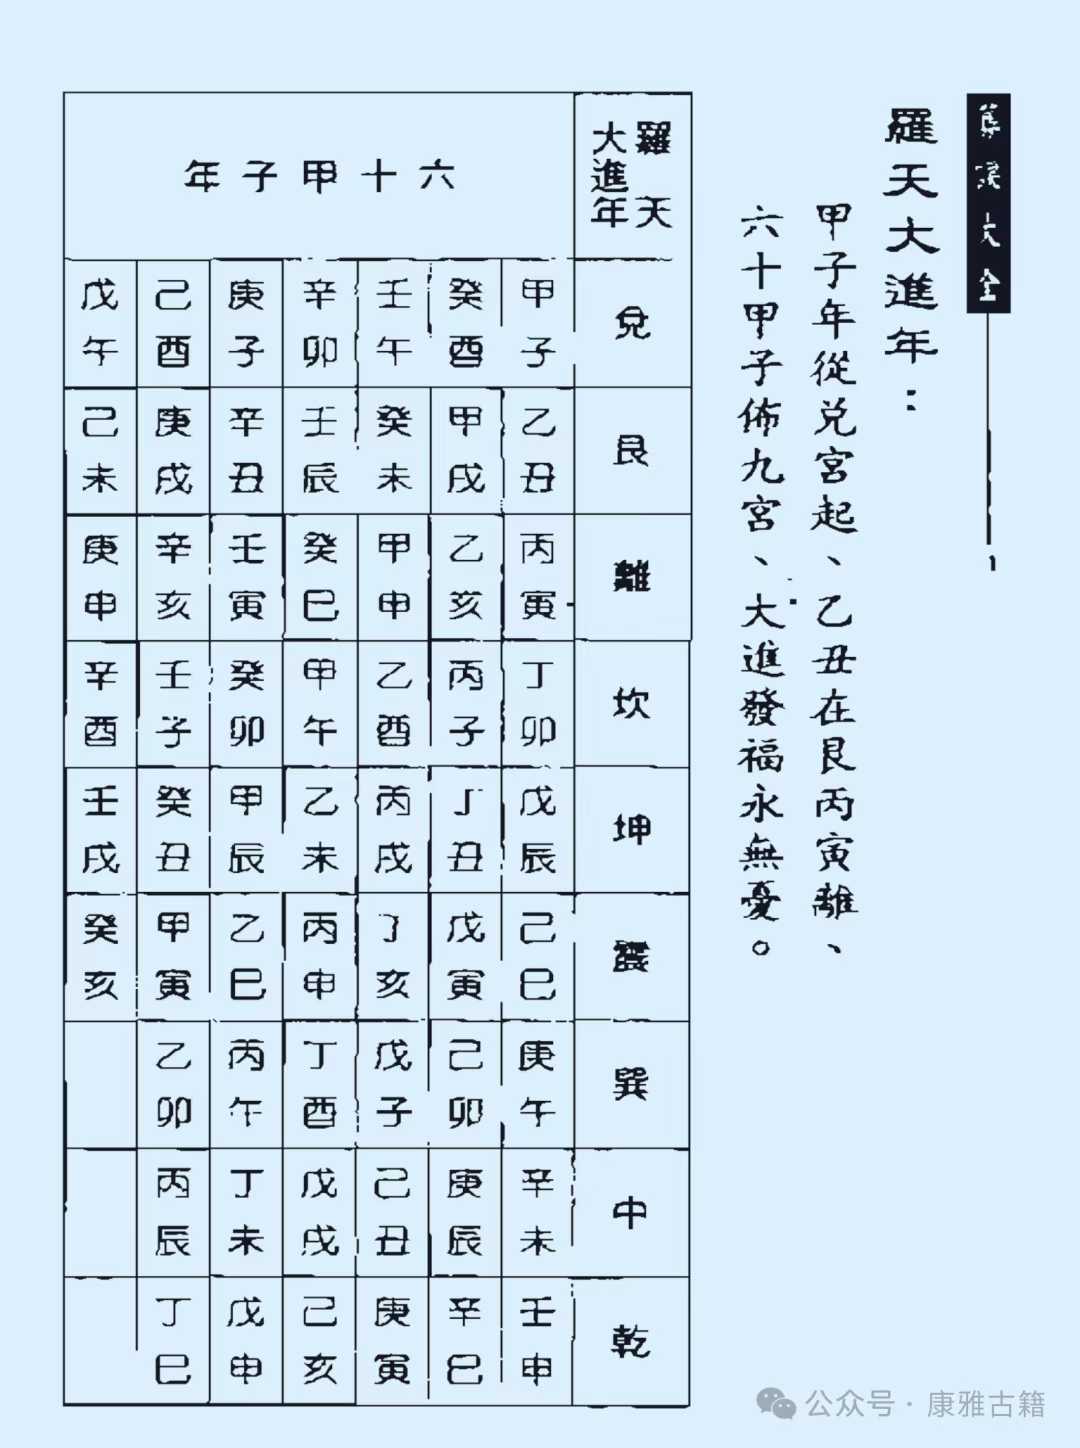 大全
羅天大進年：
甲子年從兑宮起、乙丑在艮丙寅離、
六十甲子佈九宮、大進發福永無憂。
羅天
大進年
六十甲子年
兌 甲子 癸酉 壬午 辛卯 庚子 己酉 戊午
艮 乙丑 甲戌 癸未 壬辰 辛丑 庚戌 己未
離 丙寅 乙亥 甲申 癸巳 壬寅 辛亥 庚申
坎 丁卯 丙子 乙酉 甲午 癸卯 壬子 辛酉
坤 戊辰 丁丑 丙戌 乙未 甲辰 癸丑 壬戌
震 己巳 戊寅 丁亥 丙申 乙巳 甲寅 癸亥
巽 庚午 己卯 戊子 丁酉 丙午 乙卯
中 辛未 庚辰 己丑 戊戌 丁未 丙辰
乾 壬申 辛巳 庚寅 己亥 戊申 丁巳
公众号 · 康雅古籍